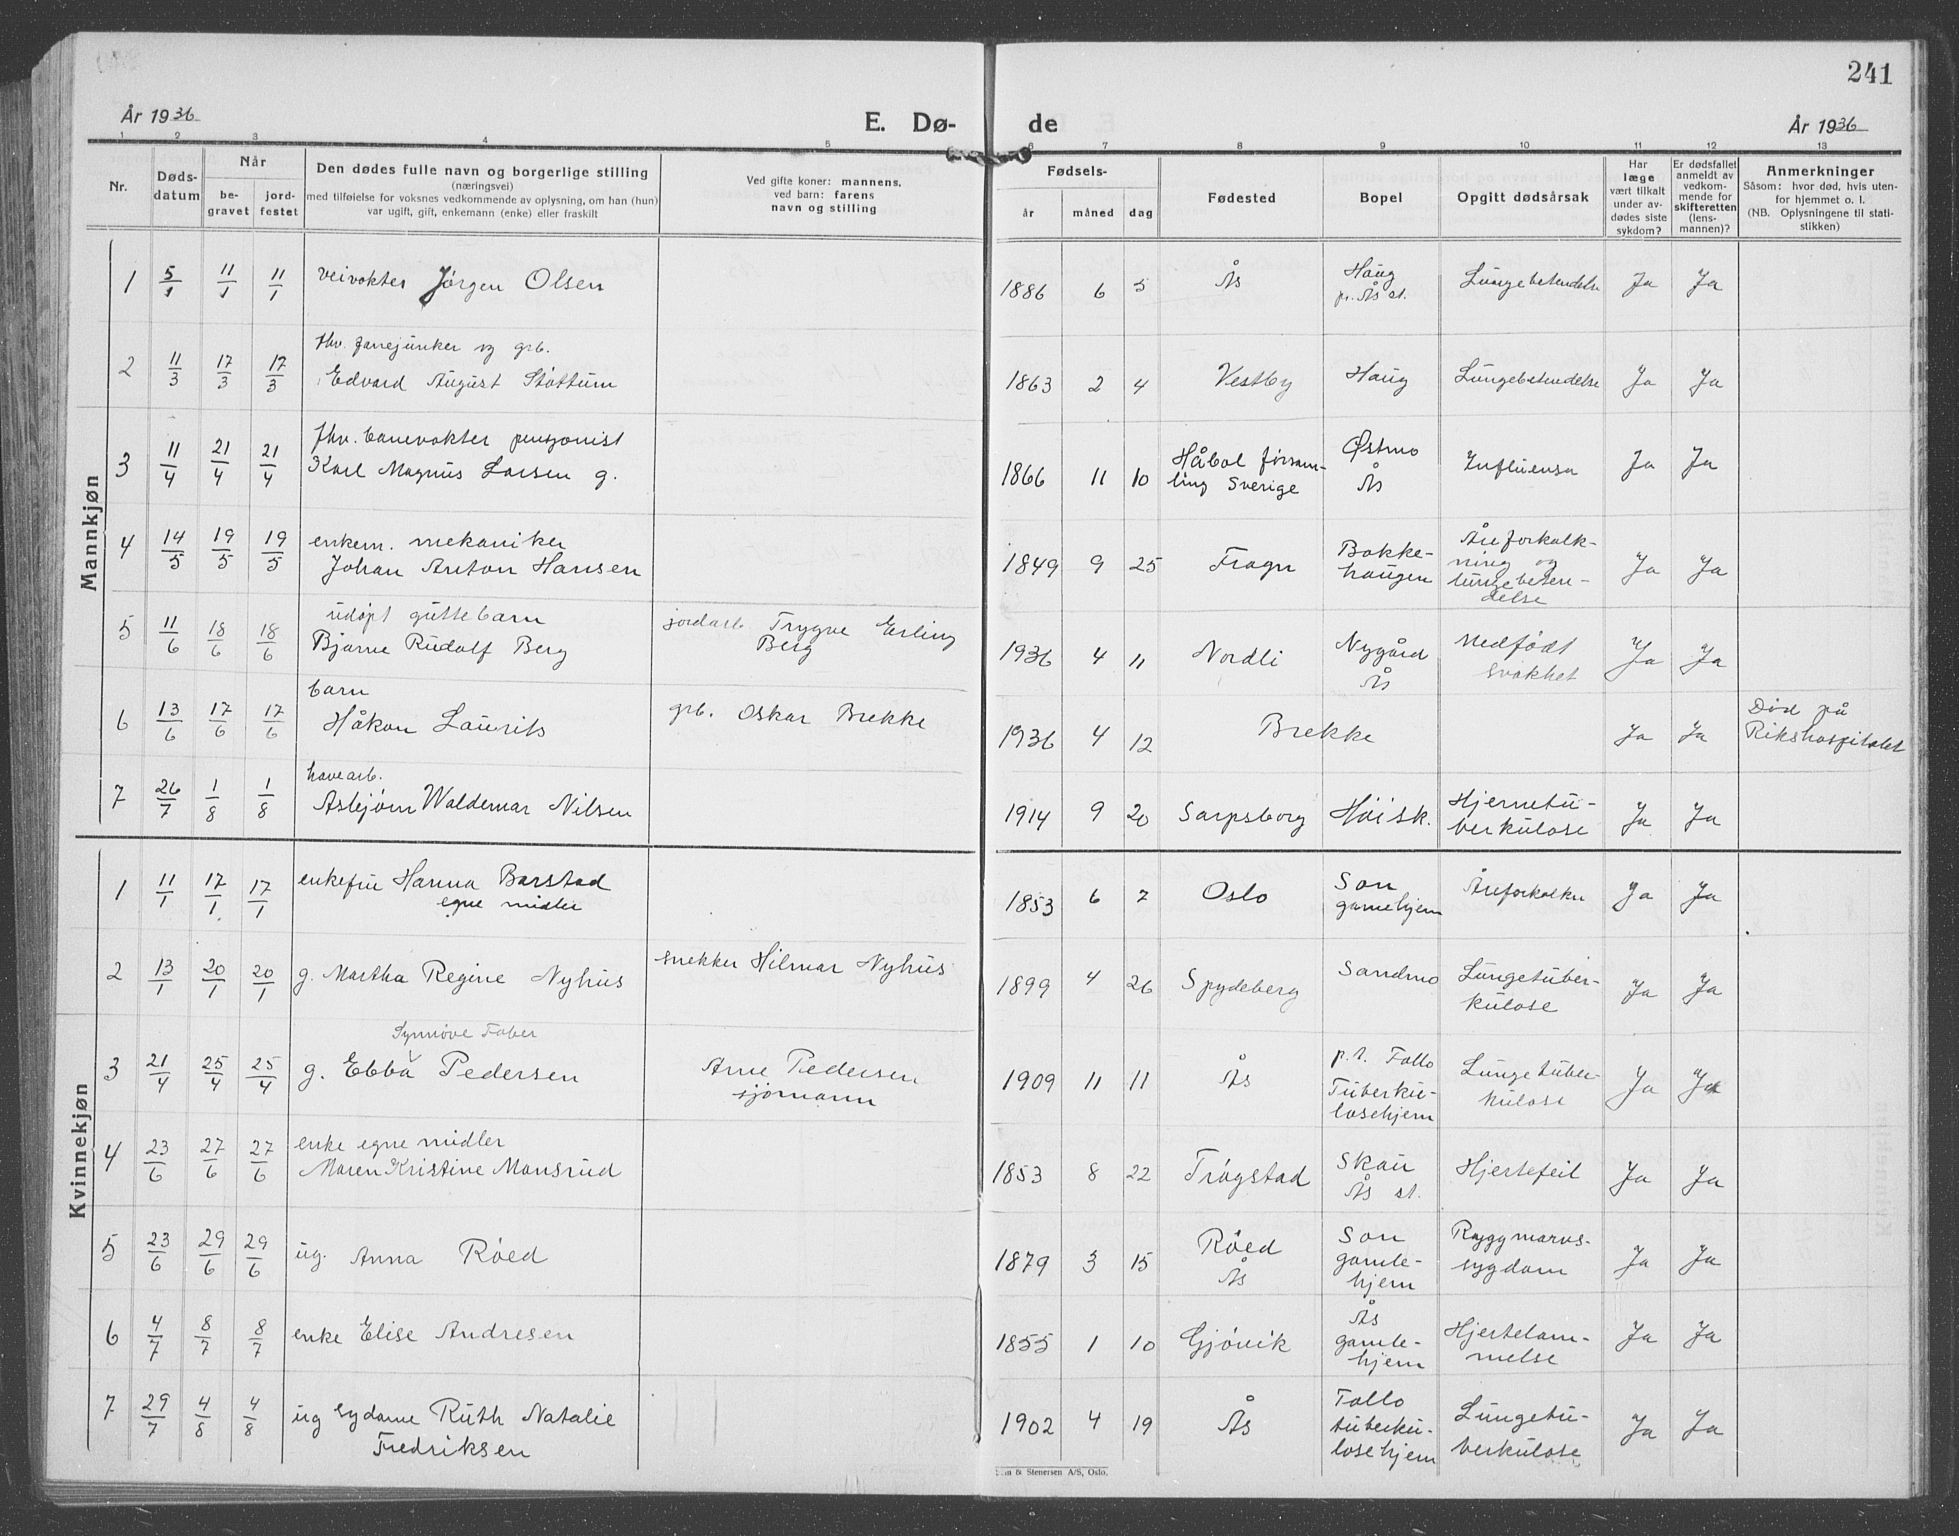 241
År 1936
E. Dø-
de
År 1936
1 2 3 4 5 6 7 8 9 10 11 12 13
Nr.
Døds-
datum
Når
be-
gravet
jord-
festet
Den dødes fulle navn og borgerlige stilling
(næringsvei)
med tilføielse for voksnes vedkommende av oplysning, om han (hun)
var ugift, gift, enkemann (enke) eller fraskilt
Ved gifte koner: mannens,
ved barn: farens
navn og stilling
Fødsels-
år måned dag
Fødested
Bopel
Opgitt dødsårsak
Har
læge
vært tilkalt
under av-
dødes siste
sykdom?
Er dødsfallet
anmeldt av
vedkom-
mende for
skifteretten
(lens-
mannen)?
Anmerkninger
Såsom: hvor død, hvis uten-
for hjemmet o. l.
(NB. Oplysningene til stati-
stikken)
Mannkjøn
1 5/1 11/1 11/1 veivokter Jørgen Olsen
1886 6 5 Ås
Haug
pr. Ås st.
Lungebetendelse Ja Ja
2 11/3 17/3 17/3
fhv. fanejunker og grb.
Edvard August Støttum
1863 2 4 Vestby Haug Lungebetendelse Ja Ja
3 11/4 21/4 21/4
fhv. banevokter pensjonist
Karl Magnus Larsen g.
1866 11 10
Håbol försam-
ling Sverige
Østmo
Ås
Influensa Ja Ja
4 14/5 19/5 19/5
enkem. mekaniker
Johan Anton Hansen
1849 9 25 Frogn
Bakke-
haugen
Åreforkalk-
ning og
lungebeten-
delse
Ja Ja
5 11/6 18/6 18/6
udøpt guttebarn
Bjarne Rudolf Berg
jordarb. Trygve Erling
Berg
1936 4 11 Nordli
Nygård
Ås
Medfødt
svakhet
Ja Ja
6 13/6 17/6 17/6
barn
Håkon Laurits
grb. Oskar Brekke
1936 4 12 Brekke
Ja Ja
Død på
Rikshospitalet
7 26/7 1/8 1/8
havearb.
Asbjørn Waldemar Nilsen
1914 9 20 Sarpsborg Høisk.
Hjernetu-
berkulose
Ja Ja
Kvinnekjøn
1 11/1 17/1 17/1
enkefru Hanna Barstad
egne midler
1853 6 7 Oslo
Son
gamlehjem
Åreforkalkn Ja Ja
2 13/1 20/1 20/1 g. Martha Regine Nyhus
snekker Hilmar Nyhus
1899 4 26 Spydeberg Sandmo
Lungetuber-
kulose
Ja Ja
3 21/4 25/4 25/4
Synnøve Faber
g. Ebba Pedersen
Arne Pedersen
sjømann
1909 11 11 Ås
p.t. Follo
Tuberku-
losehjem
Lungetuber-
kulose
Ja Ja
4 23/6 27/6 27/6
enke egne midler
Maren Kristine Monsrud
1853 8 22 Trøgstad
Skau
Ås st.
Hjertefeil Ja Ja
5 23/6 29/6 29/6 ug. Anna Røed
1879 3 15
Røed
Ås
Son
gamle-
hjem
Ryggmarvs-
sygdom
Ja Ja
6 4/7 8/7 8/7 enke Elise Andresen
1855 1 10 Gjøvik
Ås
gamle-
hjem
Hjertelam-
melse
Ja Ja
7 29/7 4/8 4/8
ug sydame Ruth Natalie
Fredriksen
1902 4 19 Ås
Follo
tuberku-
losehjem
Lungetu-
berkulose
Ja Ja
& Stenersen A/S, Oslo.